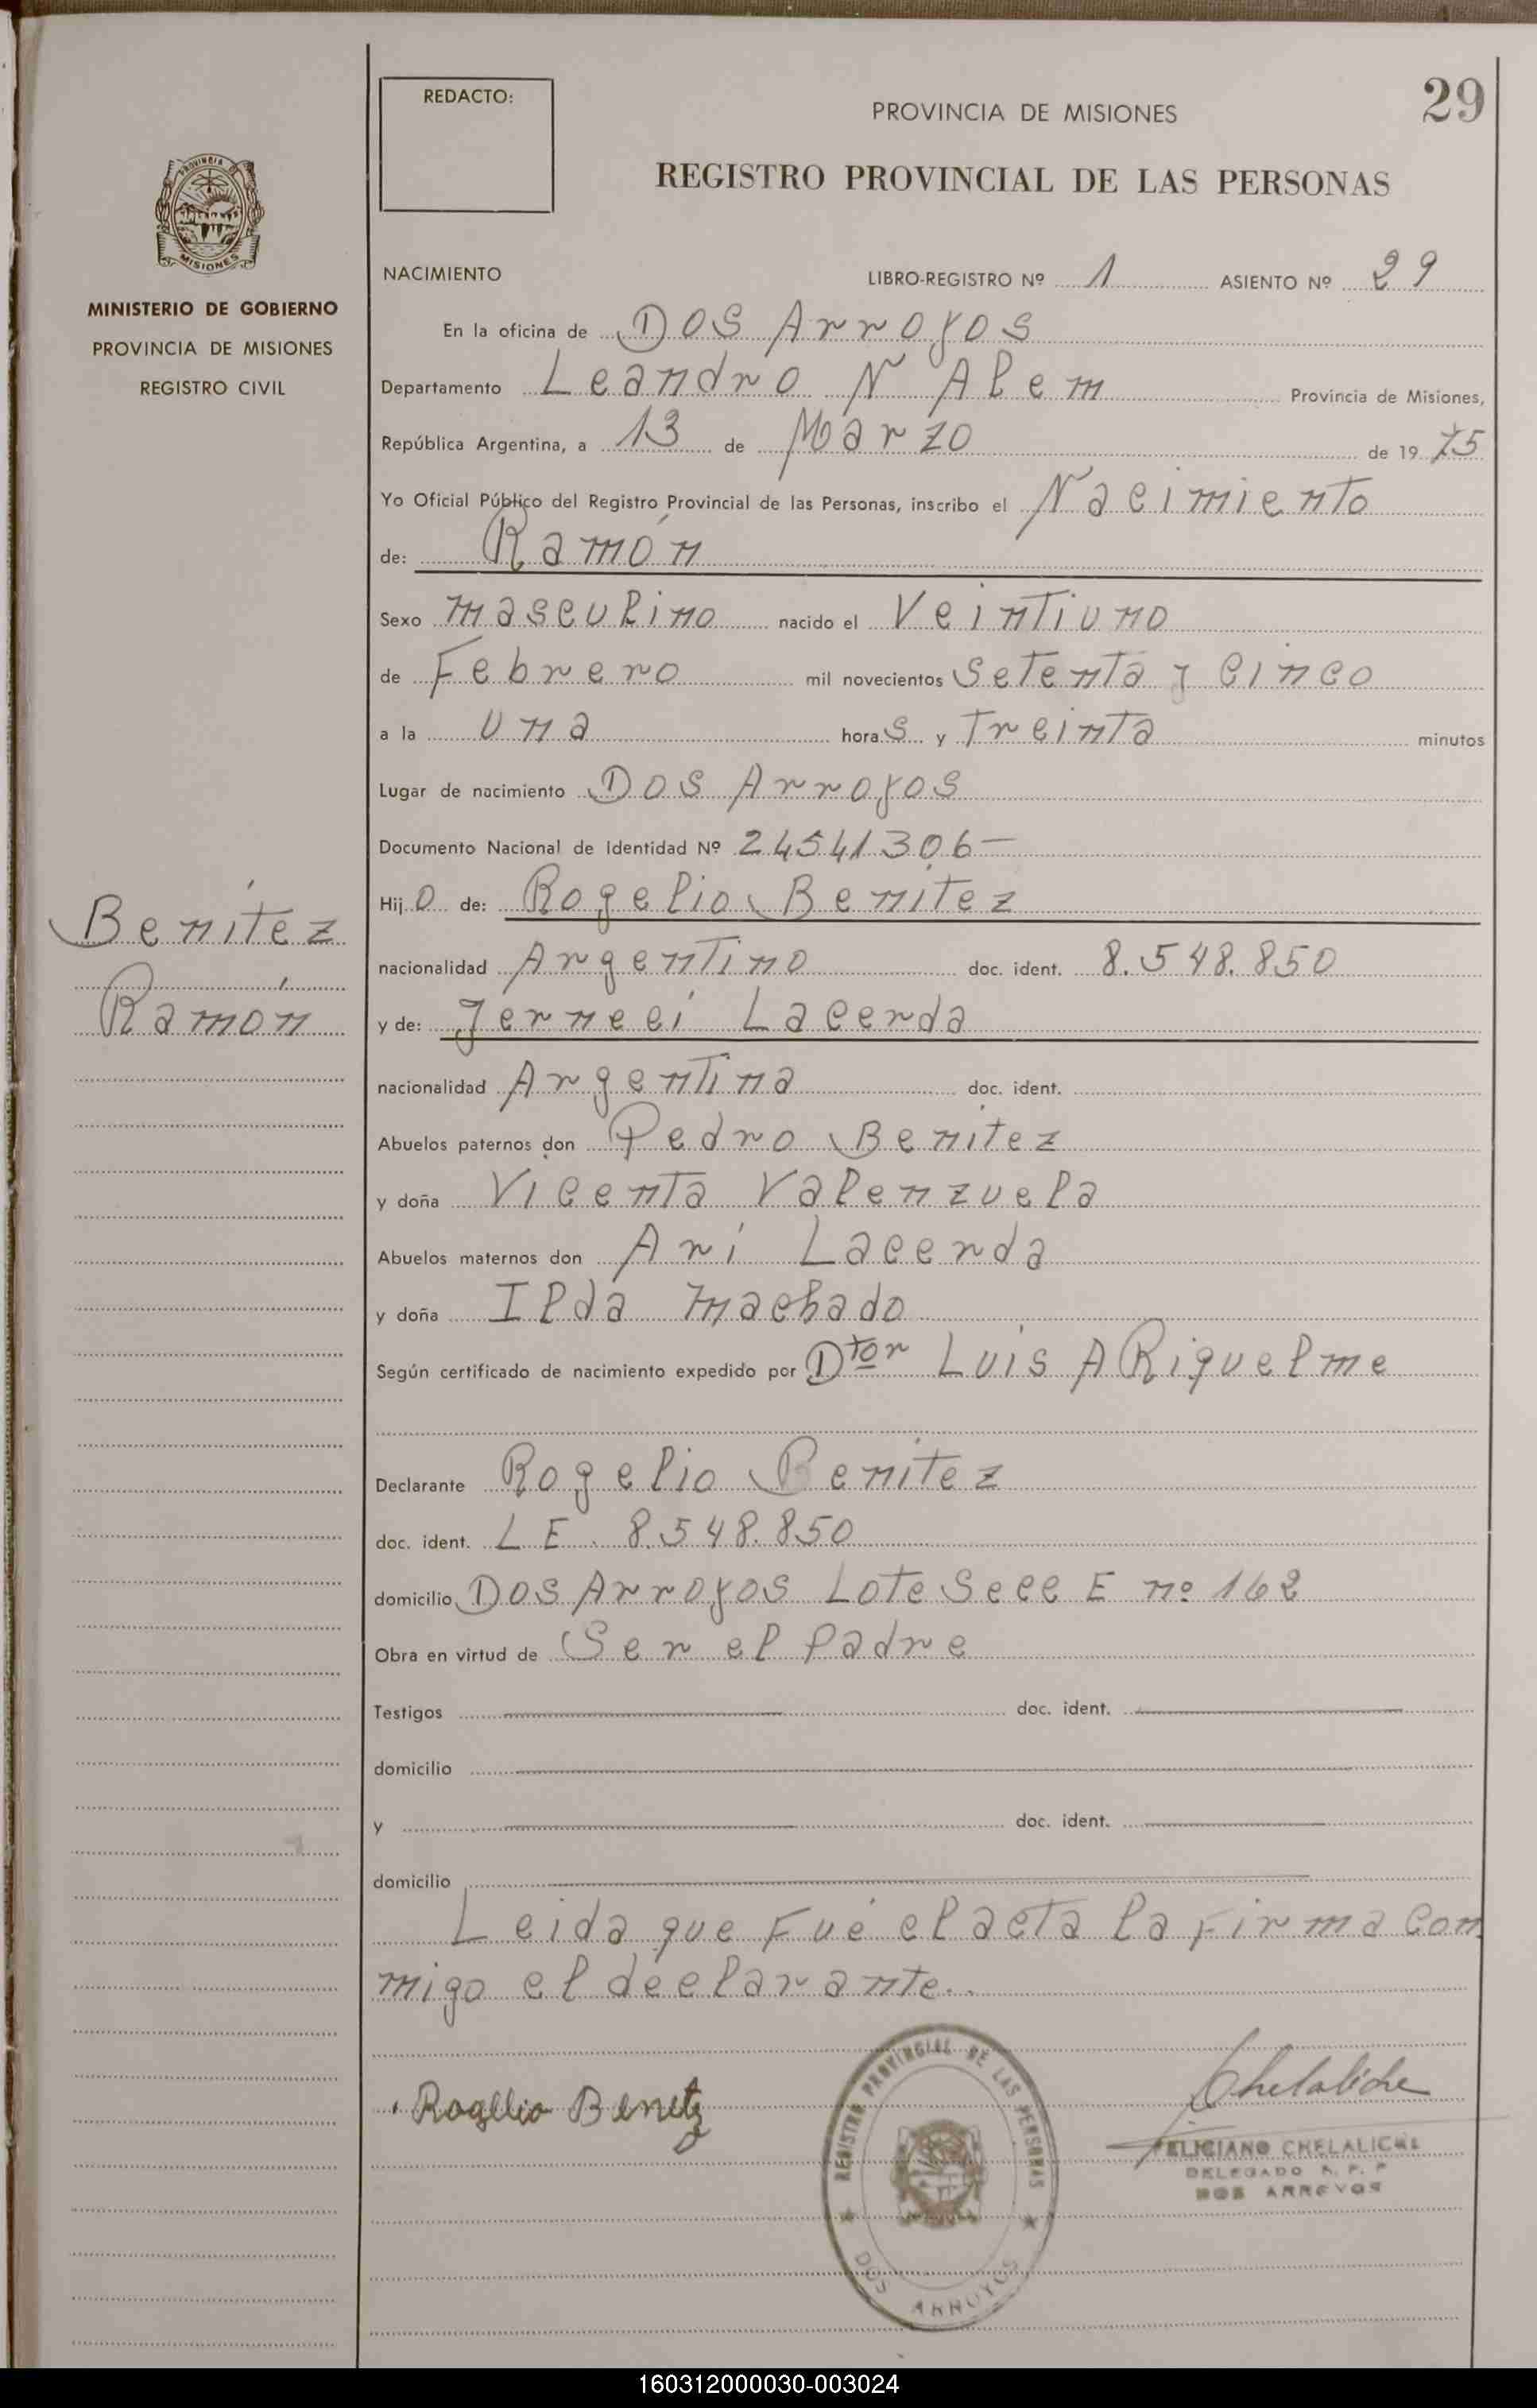 29
REDACTO:
PROVINCIA DE MISIONES
REGISTRO PROVINCIAL DE LAS PERSONAS
PROVINCIA
MISIONES
MINISTERIO DE GOBIERNO
PROVINCIA DE MISIONES
REGISTRO CIVIL
NACIMIENTO LIBRO-REGISTRO Nº 1 ASIENTO Nº 29
En la oficina de Dos Arroyos
Departamento Leandro N Alem Provincia de Misiones,
República Argentina, a 13 de Marzo de 19 75
Yo Oficial Público del Registro Provincial de las Personas, inscribo el Nacimiento
de: Ramón
Sexo masculino nacido el Veintiuno
de Febrero mil novecientos setenta y cinco
a la una hora s y Treinta minutos
Lugar de nacimiento Dos Arroyos
Documento Nacional de Identidad Nº 24541306-
Hij o de: Rogelio Benitez
Benítez
Ramón
nacionalidad Argentino doc. ident. 8.548.850
y de: Jerneci Lacerda
nacionalidad Argentina doc. ident.
Abuelos paternos don Pedro Benitez
y doña Vicenta Valenzuela
Abuelos maternos don Ari Lacerda
y doña Ilda Machado
Según certificado de nacimiento expedido por Dtor Luis A Riquelme
Declarante Rogelio Benitez
doc. ident. L E. 8.548.850
domicilio Dos Arroyos Lote Secc E nº 162
Obra en virtud de Ser el padre
Testigos doc. ident.
domicilio
y doc. ident.
domicilio
Leida que Fué el acta la Firma con
migo el declarante..
Rogelio Benitez
Chelaliche
REGISTRO PROVINCIAL DE LAS PERSONAS
DOS ARROYOS
FELICIANO CHELALICHE
DELEGADO R. P. P
DOS ARROYOS
160312000030-003024